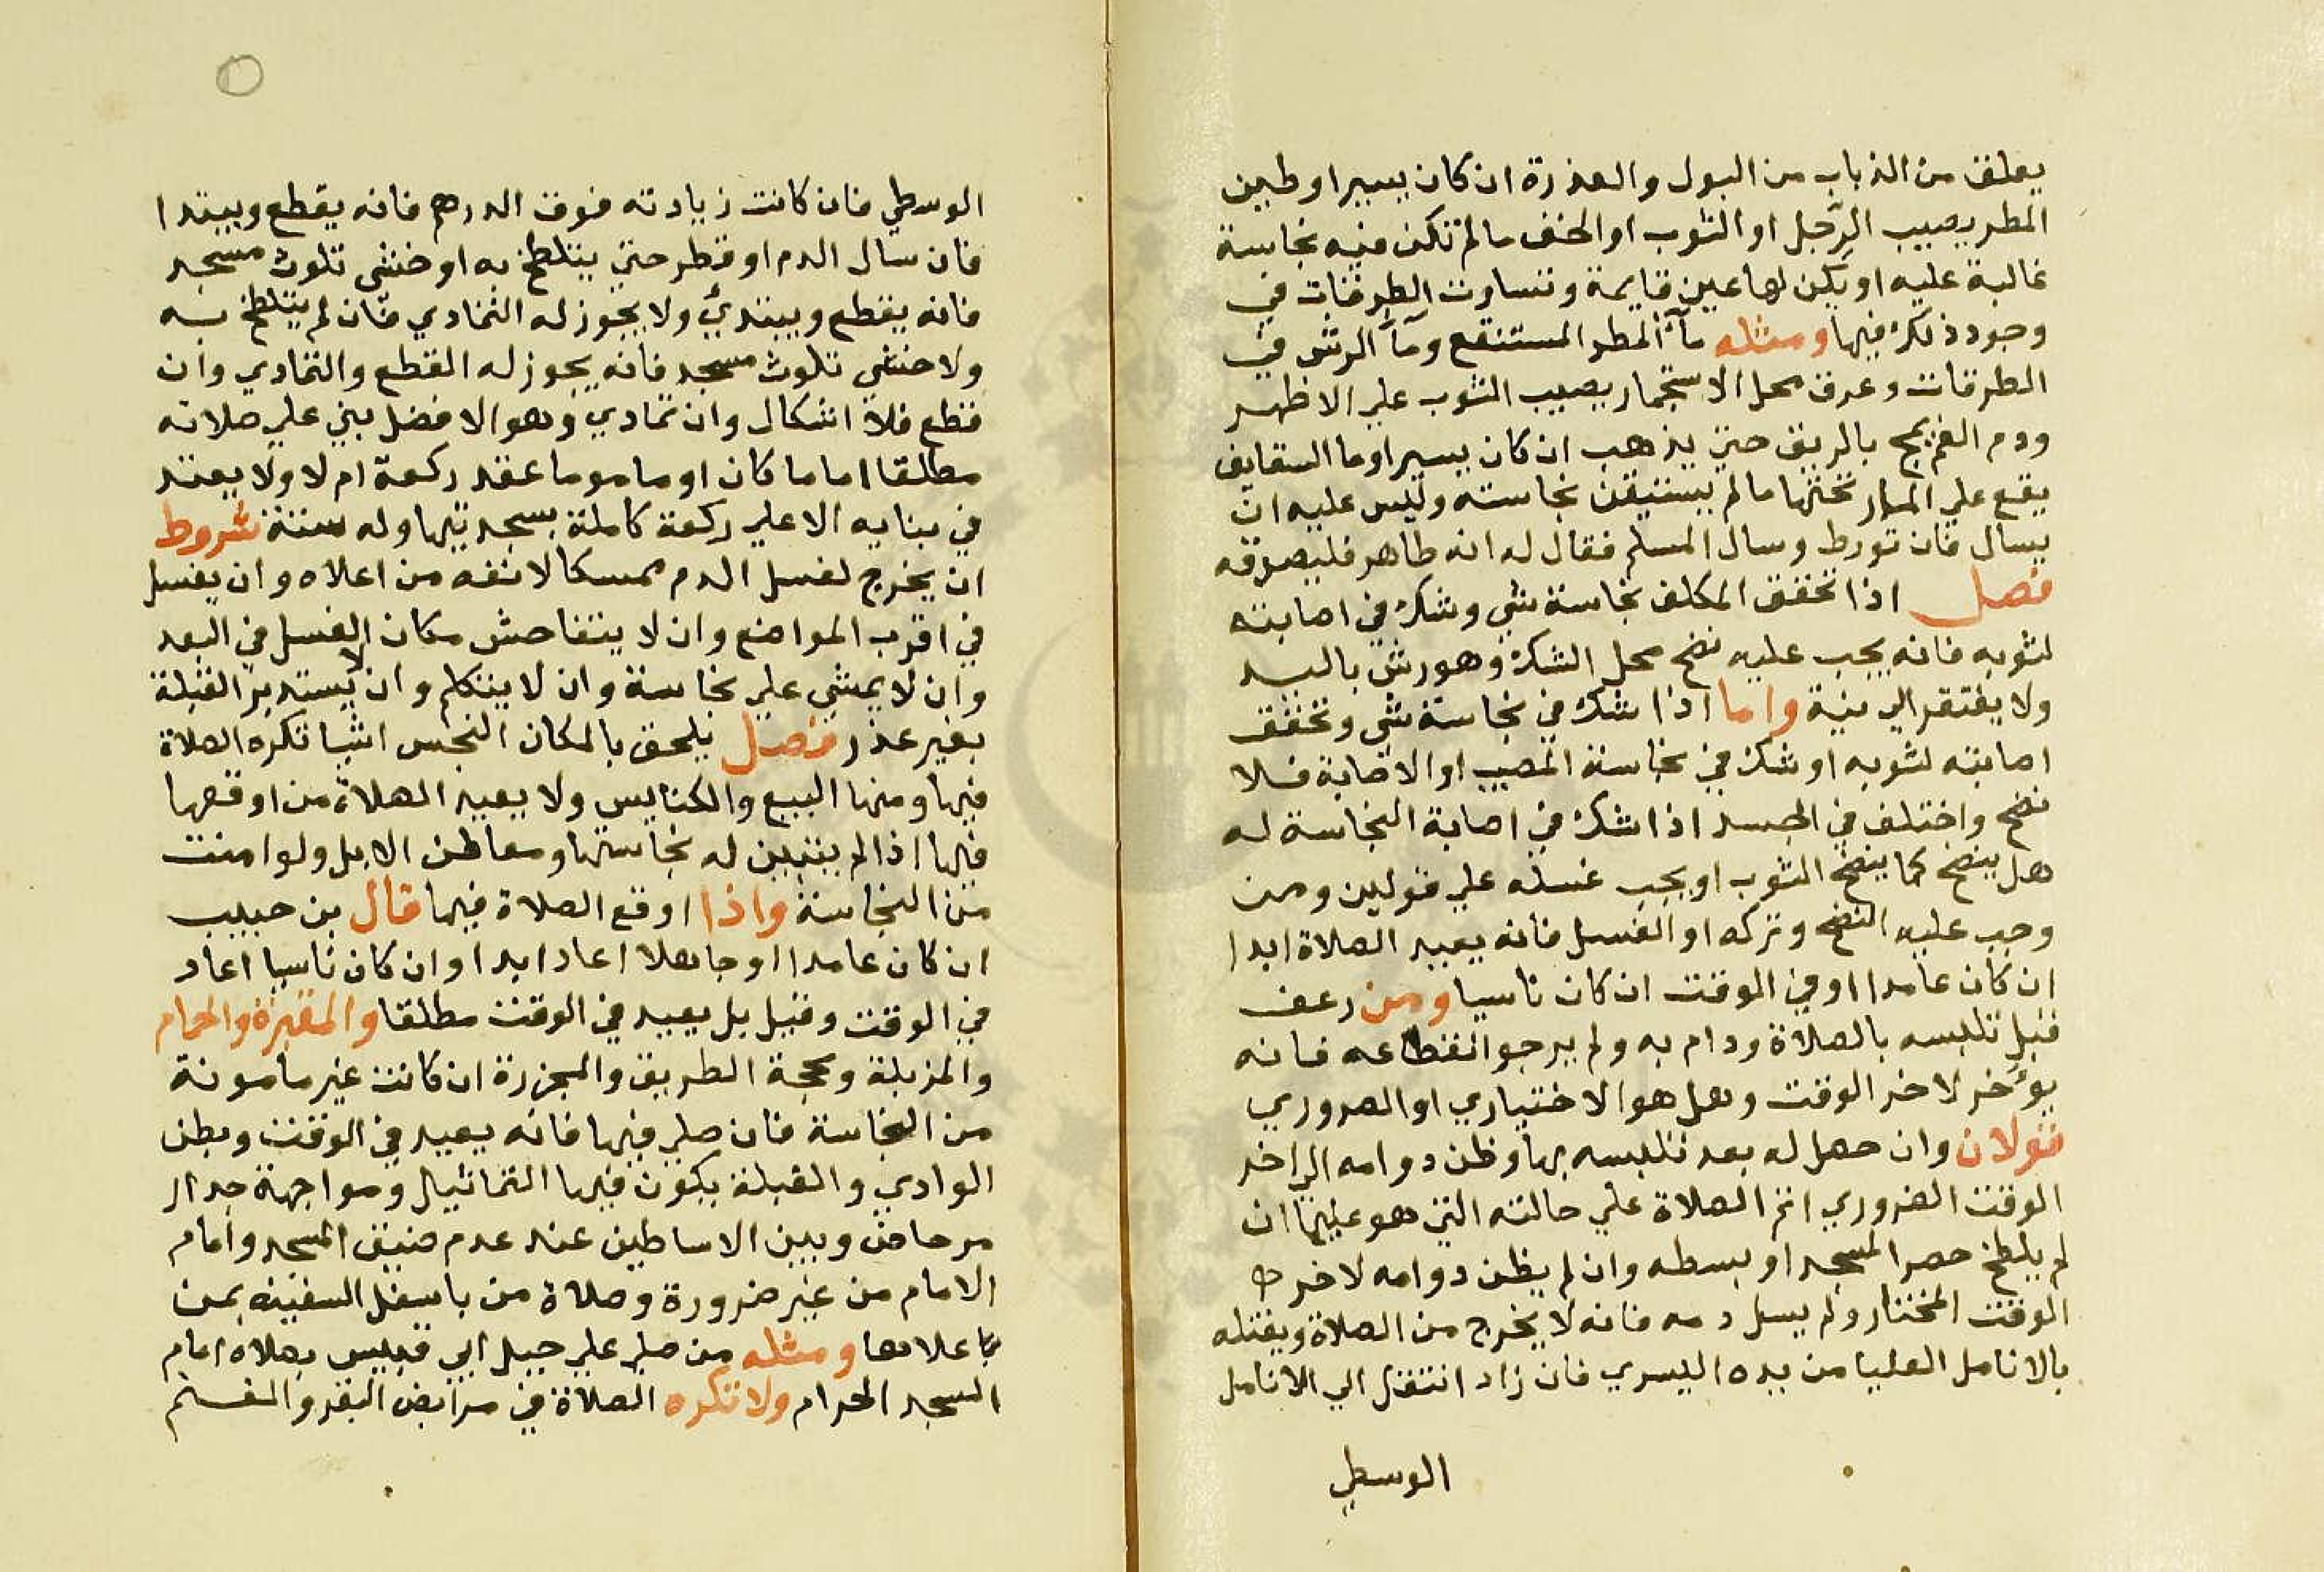 يعلق من الذباب من البول والعذرة ان كان يسيرا وطين
المطر يصيب الرجل او الثوب او الخف ما لم تكن فيه نجاسة
غالبة عليه او يكن لها عين قايمة وتساوت الطرقات في
وجود ذلك فيها ومثله مآء المطر المستنقع ومآء الرش في
الطرقات وعرق محل الاستجمار يصيب الثوب علي الاظهر
ودم الفم يمج بالريق حتي يذهب ان كان يسيرا وما السقايف
يقع علي المار تحتها ما لم يستيقن نجاسته وليس عليه ان
يسال فان تورط وسال المسلم فقال له انه طاهر فليصدقه
فصل اذا تحقق المكلف نجاسة شي وشك في اصابته
لثوبه فانه يجب عليه نضح محل الشك وهو رش باليد
ولا يفتقر الي نية واما اذا شك في نجاسة شي وتحقق
اصابته لثوبه او شك في نجاسة المصيب او الاصابة فلا
نضح واختلف في الجسد اذا شك في اصابة النجاسة له
هل ينضح كما ينضح الثوب او يجب غسله علي قولين ومن
وجب عليه النضح وتركه او الغسل فانه يعيد الصلاة ابدا
ان كان عامدا او في الوقت ان كان ناسيا ومن رعف
قبل تلبسه بالصلاة ودام به ولم يرجوا انقطاعه فانه
يؤخر لاخر الوقت وهل هو الاختياري او الضروري
قولان وان حصل له بعد تلبسه بها وظن دوامه الي اخر
الوقت الضروري اتم الصلاة علي حالته التي هو عليها ان
لم يلطخ حصر المسجد او بسطه وان لم يظن دوامه لاخر
الوقت المختار ولم يسل دمه فانه لا يخرج من الصلاة ويفتله
بالانامل العليا من يده اليسري فان زاد انتقل الي الانامل
الوسطي
الوسطي فان كانت زيادته فوق الدرهم فانه يقطع ويبتدا
فان سال الدم او قطر حتي يتلطخ به او خشي تلوث مسجد
فانه يقطع ويبتدي ولا يجوز له التمادي فان لم يتلطخ به
ولا خشي تلوث مسجد فانه يجوز له القطع والتمادي وان
قطع فلا اشكال وان تمادي وهو الافضل بني علي صلاته
مطلقا اماما كان او ماموما عقد ركعة ام لا ولا يعتد
في بنايه الا علي ركعة كاملة بسجدتيها وله ستة شروط
ان يخرج لغسل الدم ممسكا لانفه من اعلاه وان يغسل
في اقرب المواضع وان لا يتفاحش مكان الغسل في البعد
وان لا يمشي علي نجاسة وان لا يتكلم وان لا يستدبر القبلة
بغير عذر فصل يلحق بالمكان النجس اشيا تكره الصلاة
فيها ومنها البيع والكنايس ولا يعيد الصلاة من اوقعها
فيها اذا لم يتبين له نجاستها ومعاطن الابل ولو امنت
من النجاسة واذا اوقع الصلاة فيها قال بن حبيب
ان كان عامدا او جاهلا اعاد ابدا وان كان ناسيا اعاد
في الوقت وقيل بل يعيد في الوقت مطلقا والمقبرة والحمام
والمزبلة ومحجة الطريق والمجزرة ان كانت غير مامونة
من النجاسة فان صلي فيها فانه يعيد في الوقت وبطن
الوادي والقبلة يكون فيها التماثيل ومواجهة جدار
مرحاض وبين الاساطين عند عدم ضيق المسجد وامام
الامام من غير ضرورة وصلاة من باسفل السفينه بمن
باعلاها ومثله من صلي علي جبل ابي قبيس بصلاة امام
المسجد الحرام ولا تكره الصلاة في مرابض البقر والغنم